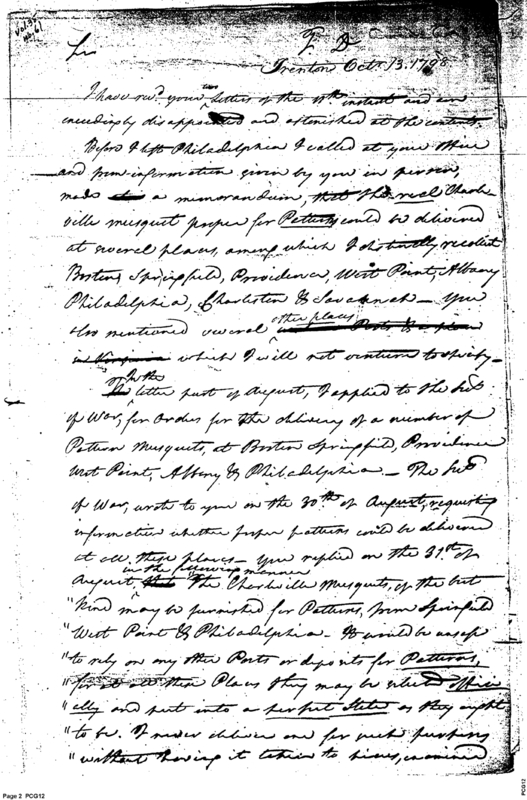 Vol. 35
No. 61
T. D
Sir
Trenton Octr. 13. 1798
I have recd. your two letters of the 11th instant and am
exceedingly disappointed and astonished at the contents.
Before I left Philadelphia I called at your office
and from information given by you in person,
made a memorandum, that the real Charle
ville musquet proper for Patterns could be delivered
at several places, among which I distinctly recollect
Boston, Springfield, Providence, West Point, Albany
Philadelphia, Charleston & Savannah — You
also mentioned several other places
which I will not venture to specify —
In the
latter part of August, I applied to the Secy
of War, for Orders for the delivery of a number of
Pattern Musquets, at Boston Springfield, Providence
West Point, Albany & Philadelphia — The Secy
of War, wrote to you on the 30th of August, requesting
information whether proper patterns could be delivered
at all these places — You replied on the 31st of
in the following manner
August, "The Charleville Musquets, of the best
"kind may be furnished for Patterns, from Springfield
"West Point & Philadelphia — It would be unsafe
"to rely on any other Posts or deposits for Patterns,
"for at all these Places they may be selected officially
and put into a perfect state as they ought
"to be. I never deliver one for such purposes
"without having it taken to pieces, examined
Page 2 PCG12
PCG12